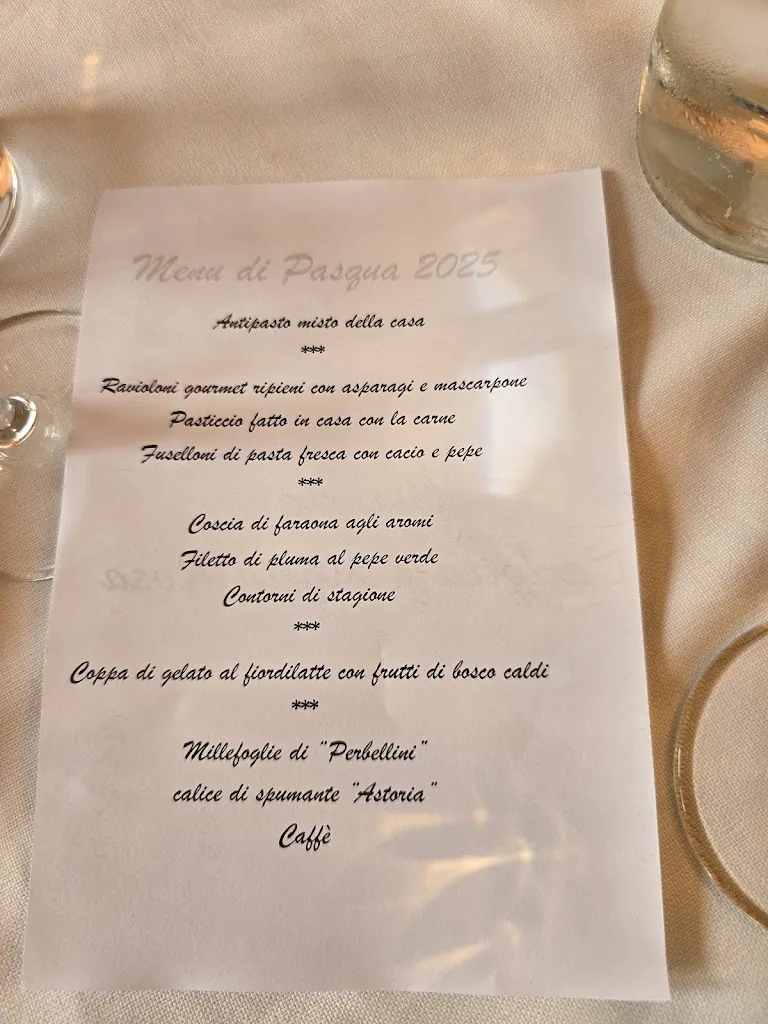 Menu di Pasqua 2025
Antipasto misto della casa
***
Ravioloni gourmet ripieni con asparagi e mascarpone
Pasticcio fatto in casa con la carne
Fuselloni di pasta fresca con cacio e pepe
***
Coscia di faraona agli aromi
Filetto di pluma al pepe verde
Contorni di stagione
***
Coppa di gelato al fiordilatte con frutti di bosco caldi
***
Millefoglie di "Perbellini"
calice di spumante "Astoria"
Caffè